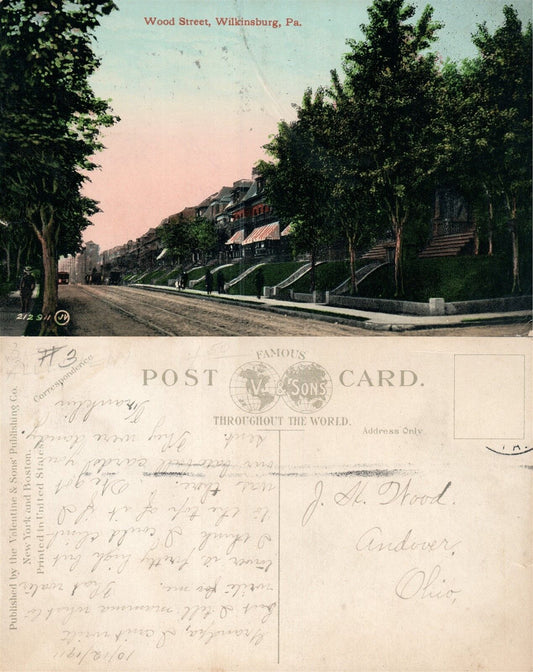 Wood Street, Wilkinsburg, Pa.
212911 JV
#3
Correspondence
POST CARD.
FAMOUS
V & SONS
THROUGHOUT THE WORLD.
Address Only
Published by the Valentine & Sons' Publishing Co.
New York and Boston.
Printed in United States
10/12/1911
Grandpa, I can't write
but I tell mamma what to
write for me. That water
tower is pretty high but
I think I could climb
to the top of it if I
was there. We got
our cards you
sent. They were dandy.
Franklin
J. H. Wood.
Andover,
Ohio,
PA.